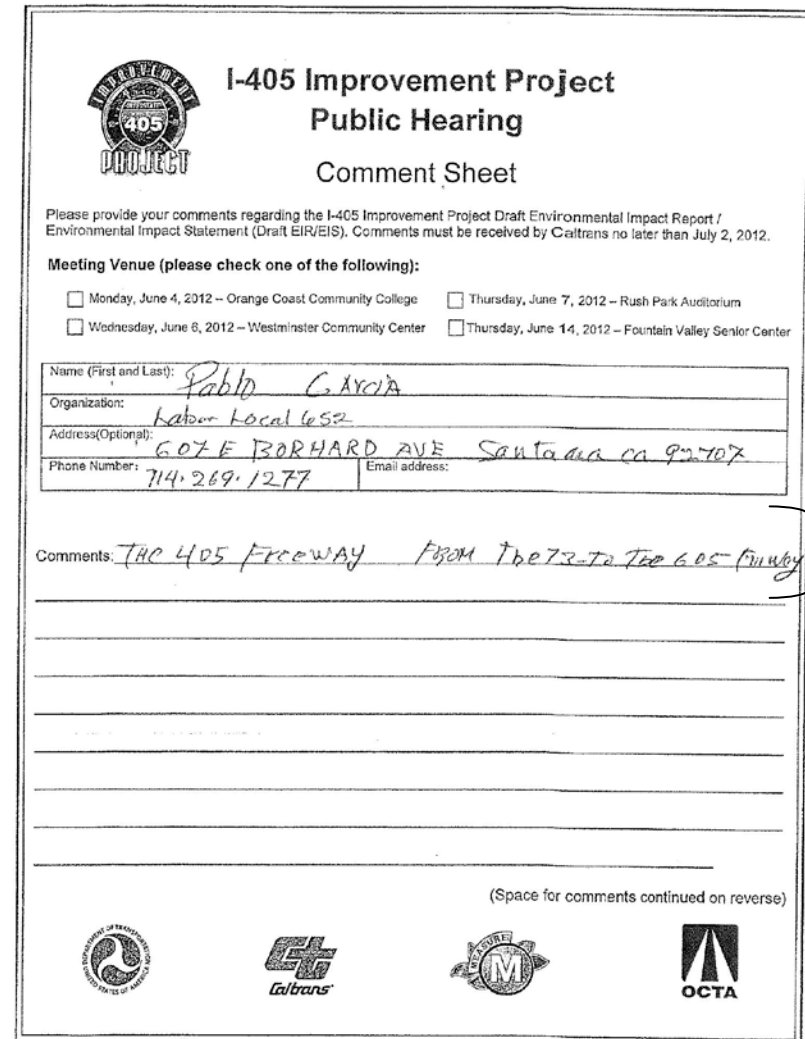 IMPROVEMENT
INTERSTATE
405
PROJECT
I-405 Improvement Project
Public Hearing
Comment Sheet
Please provide your comments regarding the I-405 Improvement Project Draft Environmental Impact Report /
Environmental Impact Statement (Draft EIR/EIS). Comments must be received by Caltrans no later than July 2, 2012.
Meeting Venue (please check one of the following):
Monday, June 4, 2012 – Orange Coast Community College
Thursday, June 7, 2012 – Rush Park Auditorium
Wednesday, June 6, 2012 – Westminster Community Center
Thursday, June 14, 2012 – Fountain Valley Senior Center
Name (First and Last): Pablo GArciA
Organization: Labor Local 652
Address(Optional): 607 E BORHARD AVE Santa ana ca 92707
Phone Number: 714.269.1277 Email address:
Comments: THE 405 FreewAY FROM The 73-To The 605
(Space for comments continued on reverse)
DEPARTMENT OF TRANSPORTATION
UNITED STATES OF AMERICA
Caltrans
MEASURE
M
OCTA